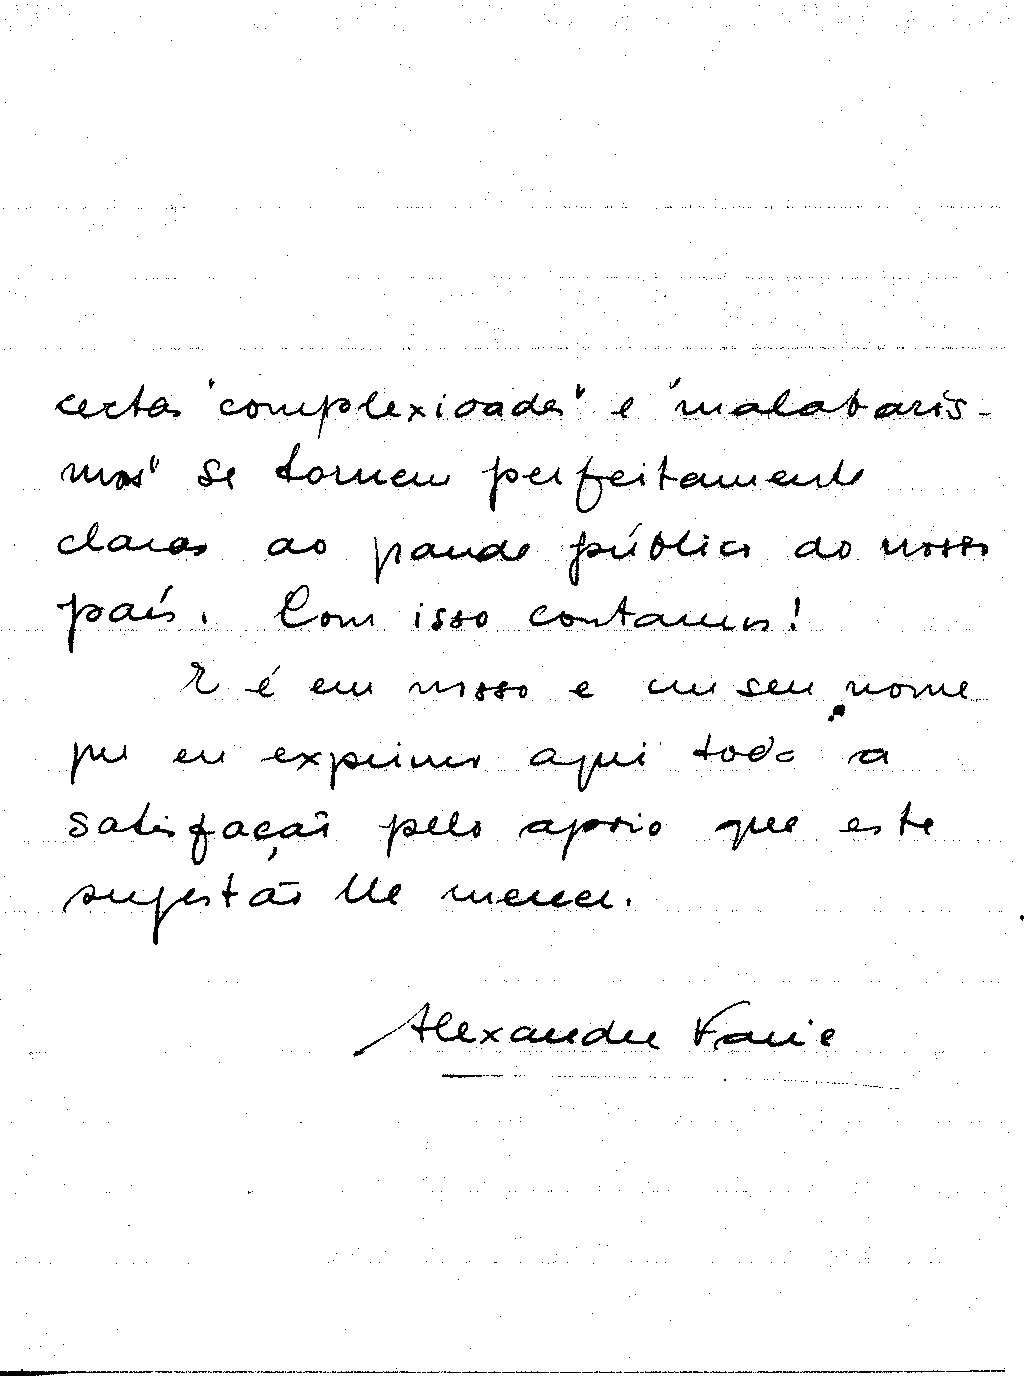 certas "complexidades" e "malabaris-
mos" se tornem perfeitamente
claros ao grande público do nosso
país. Com isso contamos!
E é em nosso e em seu nome
que eu exprimo aqui toda a
satisfação pelo apoio que esta
sugestão lhe merece.
Alexandre